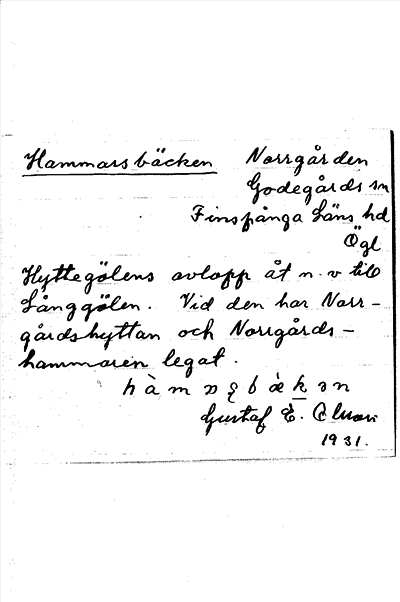 Hammarsbäcken Norrgården
Godegårds sn
Finspånga Läns hd
Ögl
Hyttegölens avlopp åt n. v till
Långgölen. Vid den har Norr-
gårdshyttan och Norrgårds-
hammaren legat.
Gustaf E.
1931.